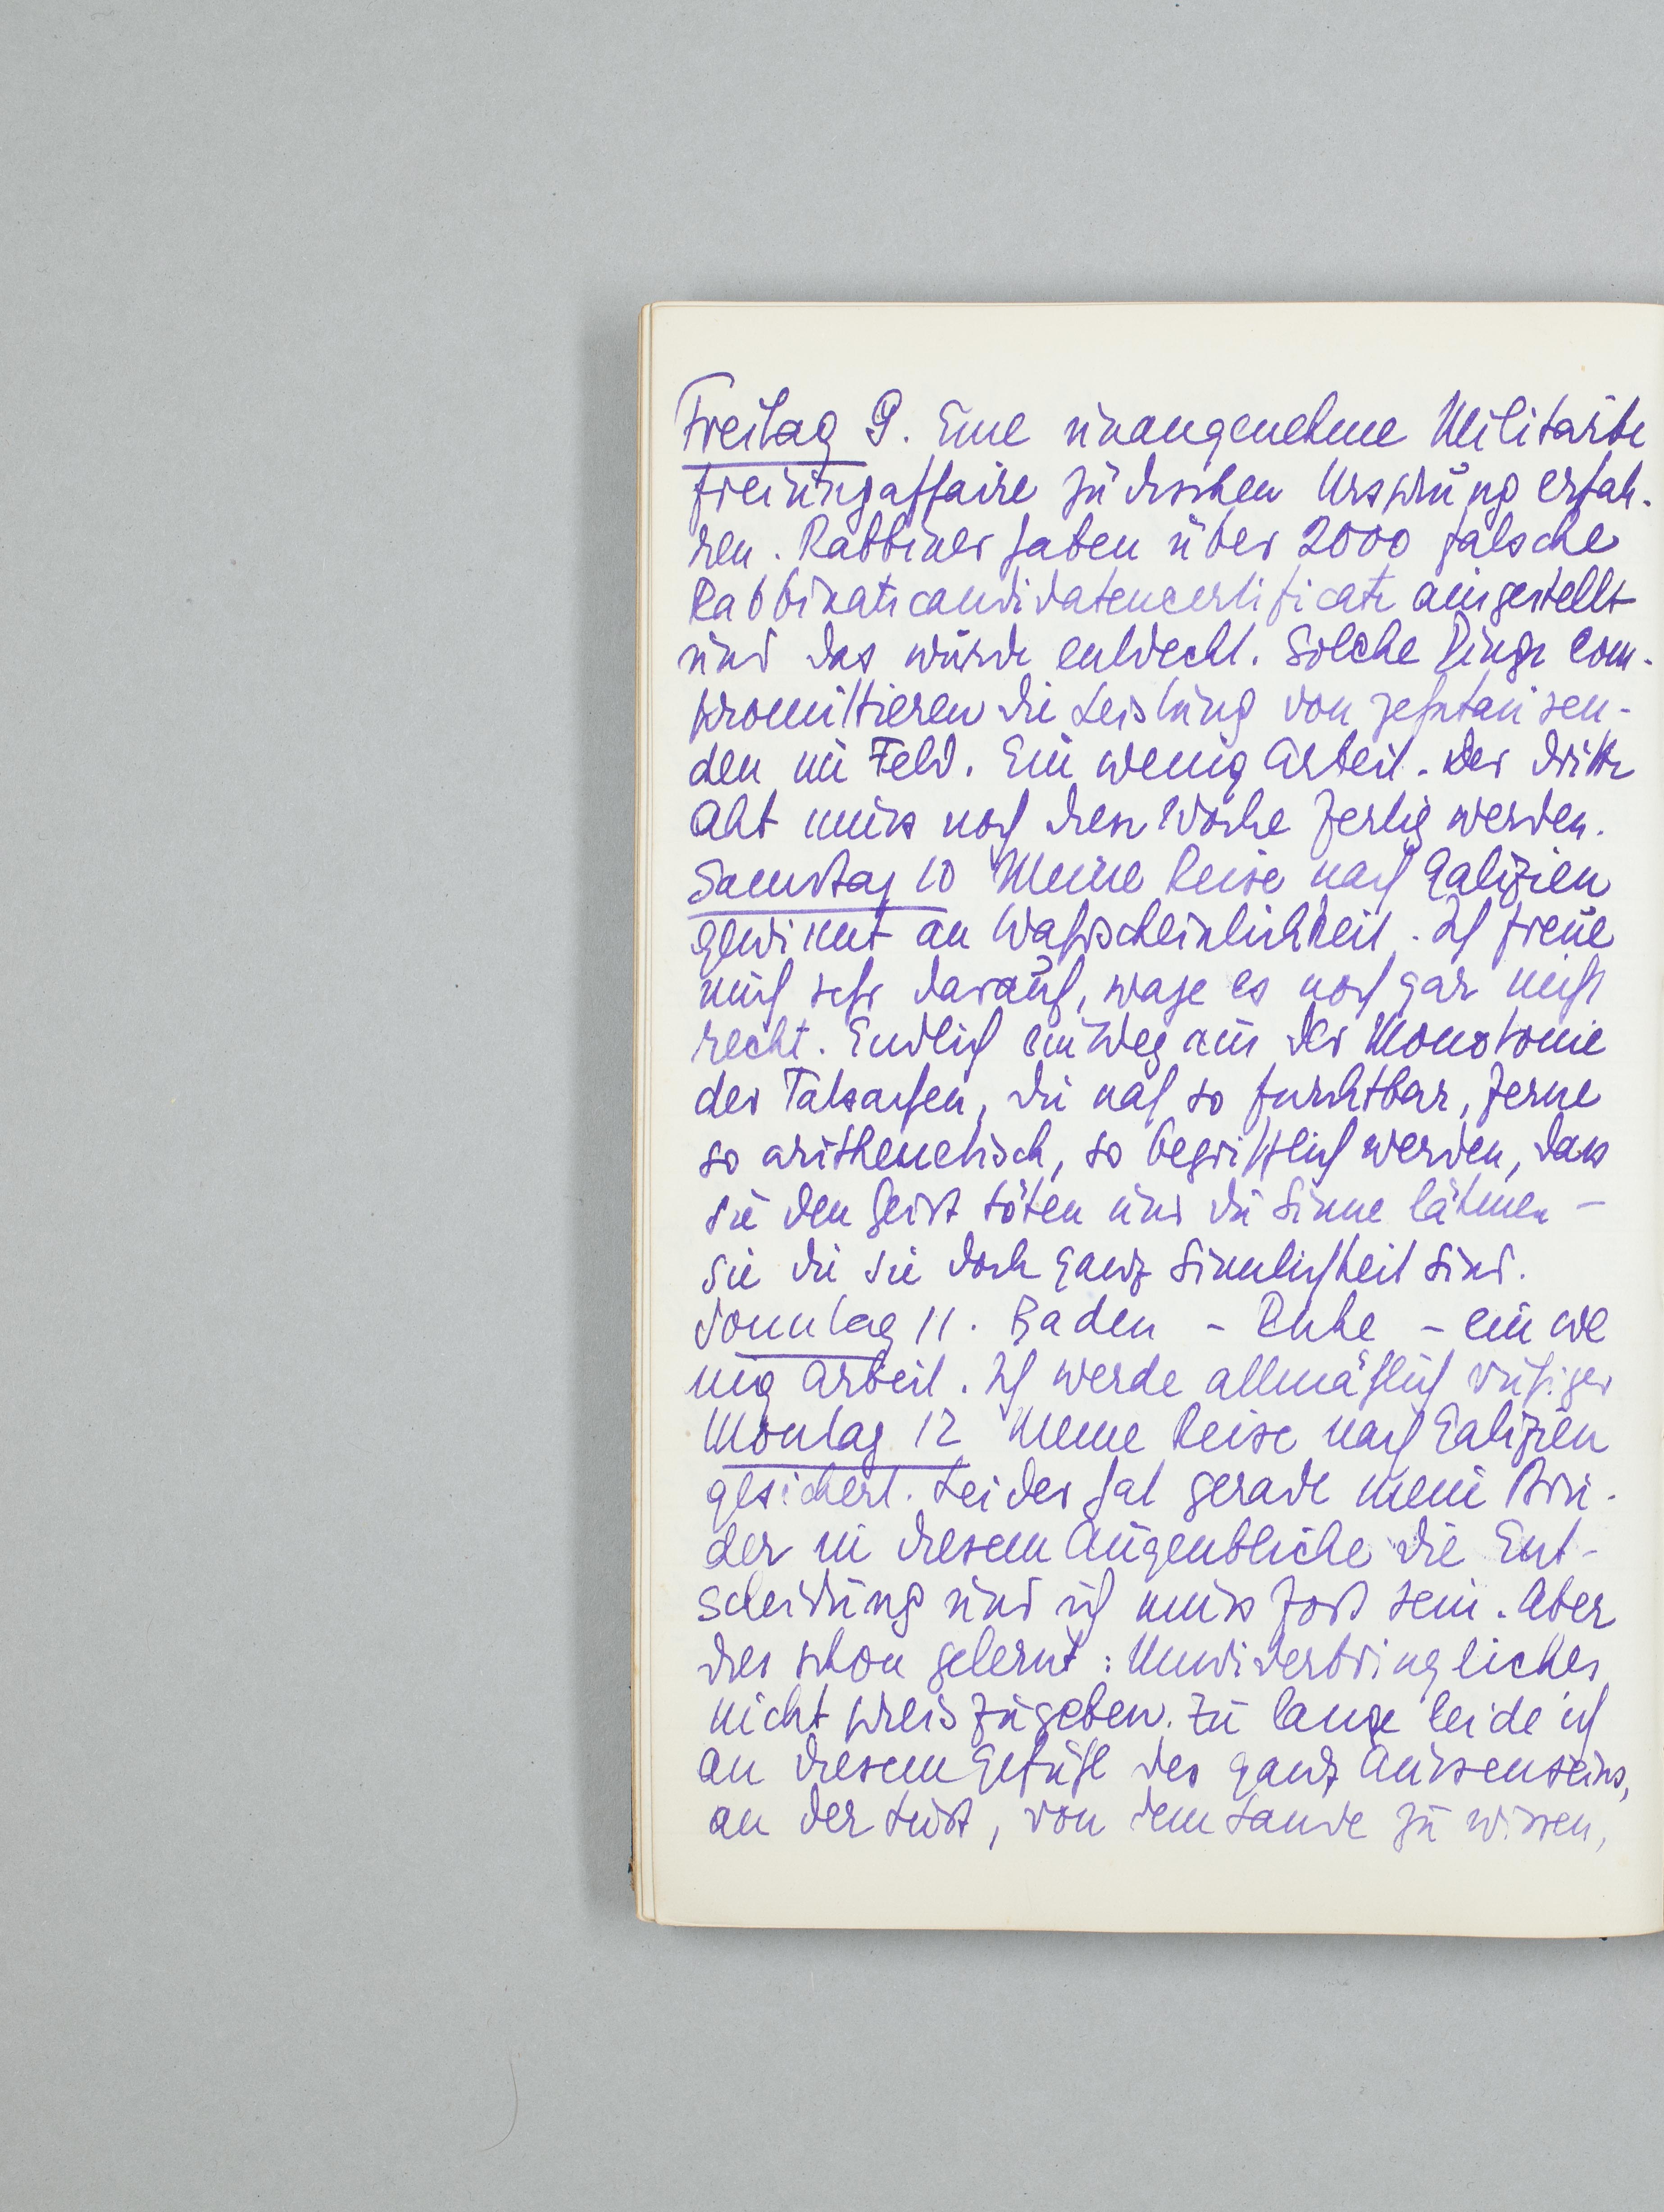 Freitag 9. Eine unangenehme Militärbe
freiungsaffaire jüdischen Ursprung erfah-
ren. Rabbiner haben über 2000 falsche
Rabbinatscandidatencertificate ausgestellt
und das wurde entdeckt. Solche Dinge com-
promittieren die Leistung von zehntausen-
den im Feld. Ein wenig Arbeit. Der dritte
Akt muss noch diese Woche fertig werden.
Samstag 10 Meine Reise nach Galizien
gewinnt an Wahrscheinlichkeit. Ich freue
mich sehr darauf, wage es noch gar nicht
recht. Endlich ein Weg aus der Monotonie
der Tatsachen, die nah so furchtbar, ferne
so arithmetisch, so begrifflich werden, dass
sie den Geist töten und die Sinne lähmen –
sie die sie doch ganz Sinnlichkeit sind.
Sonntag 11. Baden – Ruhe – ein we
nig Arbeit. Ich werde allmählich ruhiger
Montag 12 Meine Reise nach Galizien
gesichert. Leider hat gerade mein Bru-
der in diesem Augenblicke die Ent-
scheidung und ich muss fort sein. Aber
dies schon gelernt: Unwiderbringliches
nicht preiszugeben. Zu lange leide ich
an diesem Gefühl des ganz Aussenseins,
an der Lust, von dem Lande zu wissen,